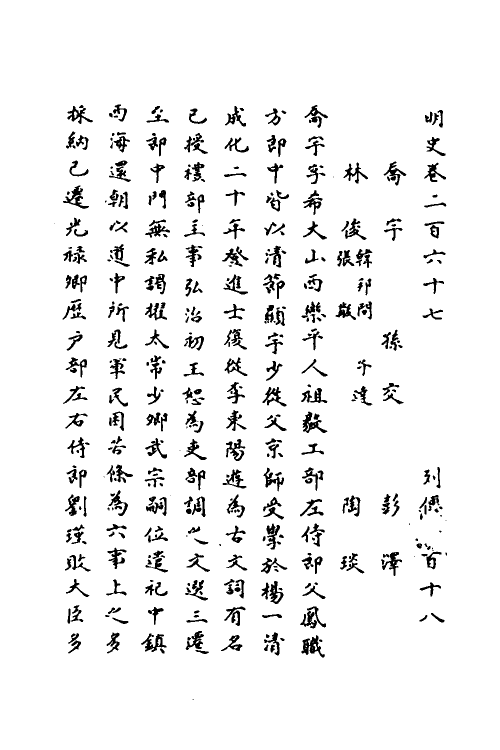 明史卷二百六十七 列傳 百十八
喬宇 孫交 彭澤
林俊 韓邦問 子達 張黻 陶琰
喬宇字希大山西樂平人祖毅工部左侍郎父鳳職
方郎中皆以清節顯宇少從父京師受學於楊一清
成化二十年登進士復從李東陽遊為古文詞有名
已授禮部主事弘治初王恕為吏部調之文選三遷
至郎中門無私謁擢太常少卿武宗嗣位遣祀中鎮
西海還朝以道中所見軍民困苦條為六事上之多
採納已遷光祿卿歷戶部左右侍郎劉瑾敗大臣多